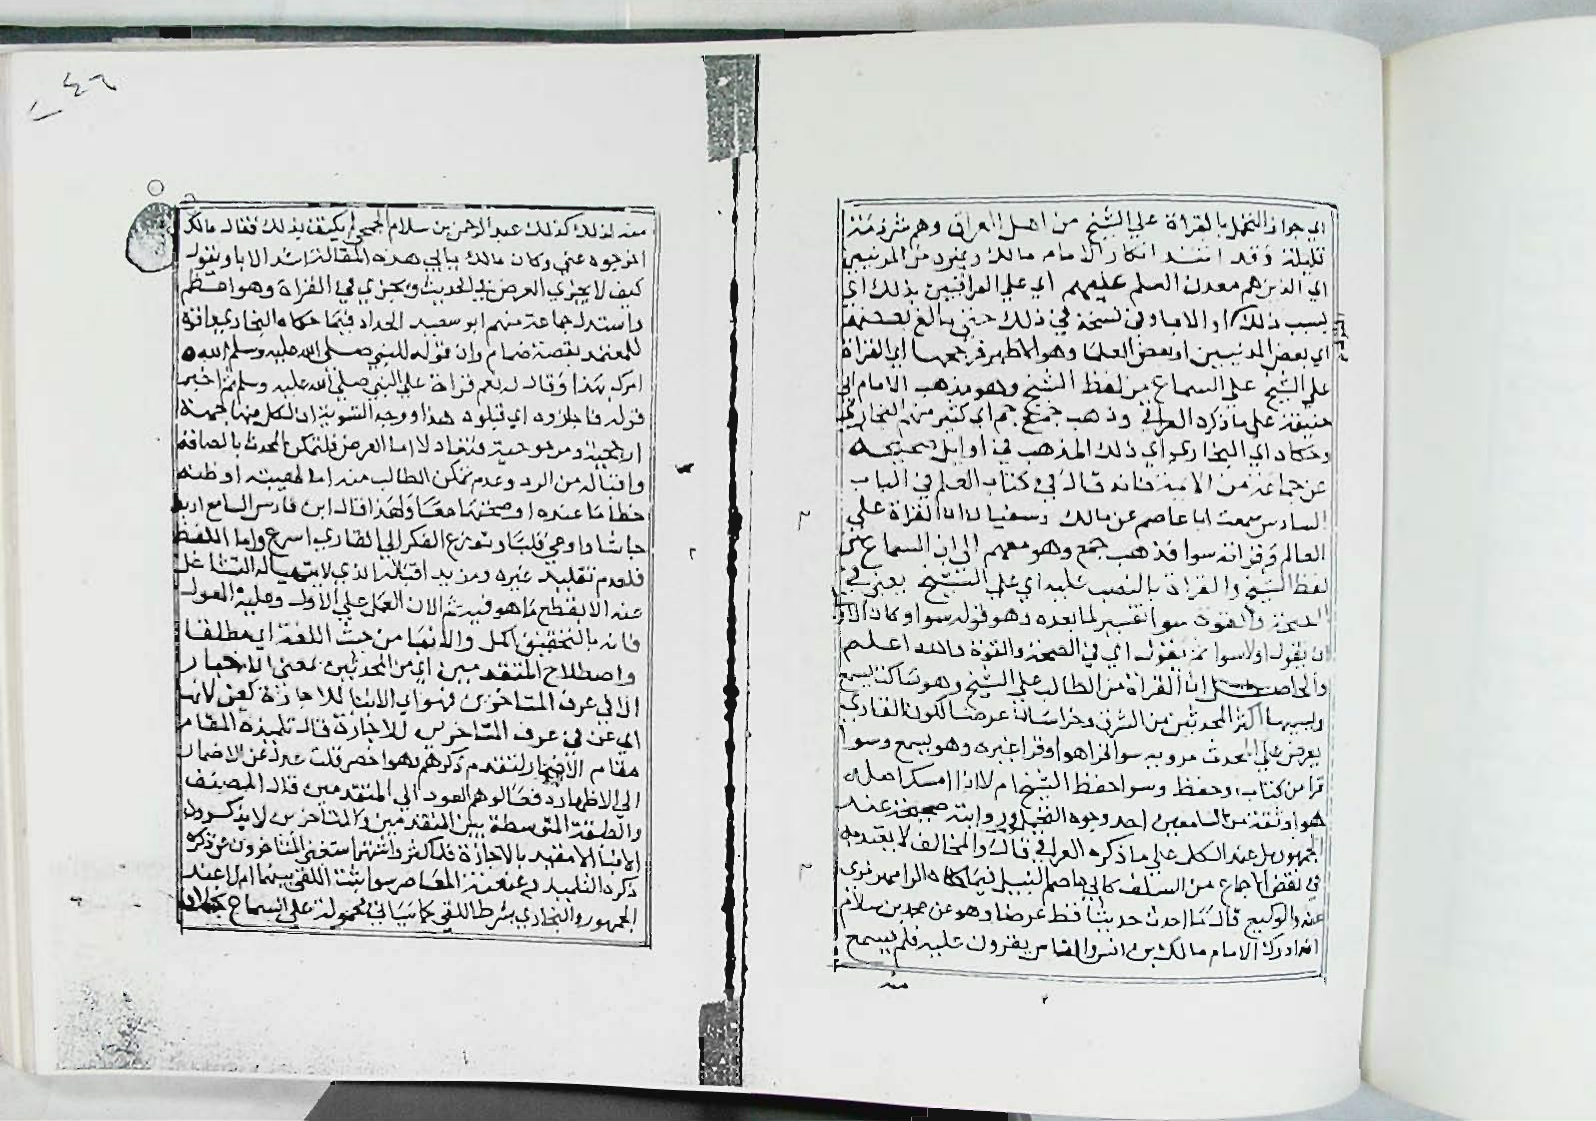 اي جواز التحمل بالقراة علي الشيخ من اهل العراق وهم شرذمة
قليلة وقد اشتد انكار الامام مالك وغيره من المدنيين
اي الذين هم معدن العلم عليهم اي علي العراقيين بذلك اي
بسبب ذلك او الابا وفي نسخة في ذلك حتي بالغ بعضهم
اي بعض المدنيين او بعض العلما وهو الاظهر فرجحها اي القراة
علي الشيخ علي السماع من لفظ الشيخ وهو مذهب الامام ابي
حنيفة علي ما ذكره العراقي وذهب جمع جم اي كثير منهم البخاري
وحكاه اي البخاري اي ذلك المذهب في اوايل صحيحه
عن جماعة من الايمة فانه قال في كتاب العلم في الباب
السادس سمعت ابا عاصم عن مالك وسفيان ان القراة علي
العالم وقراته سوا فذهب جمع وهو معهم الي ان السماع من
لفظ الشيخ والقراة بالنصب عليه اي علي الشيخ يعني في
الصحة والقوة سوا تفسير لما بعده وهو قوله سوا وكان الاولي
ان يقول اولا سوا ثم يقول اي في الصحة والقوة والله اعلم
والحاصل ان القراة من الطالب علي الشيخ وهو ساكت يسمع
ويسميها اكثر المحدثين من الشرق وخراسان عرضا لكون القاري
يعرض علي المحدث مرويه سوا قراها هو او قرا غيره وهو يسمع وسوا
قرا من كتاب او حفظ وسوا حفظ الشيخ ام لا اذا امسك اصله
هو او ثقة من السامعين احد وجوه التحمل وروايته صحيحة عند
الجمهور بل عند الكل علي ما ذكره العراقي قال والمخالف لا يعتد به
في نقض الاجماع من السلف كابي عاصم النبيل فيما حكاه الرامهرمزي
عنه والوكيع قال ما احدث حديثا قط عرضا وهو عن محمد بن سلام
انه ادرك الامام مالك بن انس والناس يقرون عليه فلم يسمع
منه
منه لذلك كذلك عبد الرحمن بن سلام الجمحي لم يكتف بذلك فقال مالك
اخرجوه عني وكان مالك يابي هذه المقالة اشد الابا ويقول
كيف لا يجزي العرض في الحديث ويجزي في القراة وهو اعظم
واستدل جماعة منهم ابو سعيد الحداد فيما حكاه البخاري واقره
للمعتمد بقصة ضمام وان قوله للنبي صلي الله عليه وسلم الله
امرك بهذا وقال له نعم قراة علي النبي صلي الله عليه وسلم ثم اخبر
قومه فاجازوه اي قبلوه هذا ووجه التسوية ان لكل منهما جهة
ارجحية ومرجوحية فتعادلا اما العرض فلتمكن المحدث بالصافه
واقباله من الرد وعدم تمكن الطالب منه اما لهيبته او ظنه
خطا ما عنده او صحتهما معا ولهذا قال ابن فارس السامع اربط
جاشا واوعي قلبا وتوزع الفكر الي القاري اسرع واما اللفظ
فلعدم تقليد غيره ومزيد اقباله الذي لا يتهيا له التشاغل
عنه الا بقطع ما هو فيه ثم الان العمل علي الاول وعليه المعول
فانه بالتحقيق اكمل والانبا من حيث اللغة اي مطلقا
واصطلاح المتقدمين اي من المحدثين بمعني الاخبار
الا في عرف المتاخرين فهو اي الانبا للاجازة كعن لانها
اي عن في عرف المتاخرين للاجازة قال تلميذه المقام
مقام الاضمار لتقدم ذكرهم وهو اخصر قلت عدل عن الاضمار
الي الاظهار دفعا لوهم العود الي المتقدمين قال المصنف
والطبقة المتوسطة بين المتقدمين والمتاخرين لا يذكرون
الانبا الا مقيد بالاجازة فلما كثر واشتهر استغني المتاخرون عن ذكره
ذكره التلميذ وعنعنة المعاصر سوا ثبت اللقي بينهما ام لا عند
الجمهور والبخاري بشرط اللقي كما سياتي محمولة علي السماع بخلاف